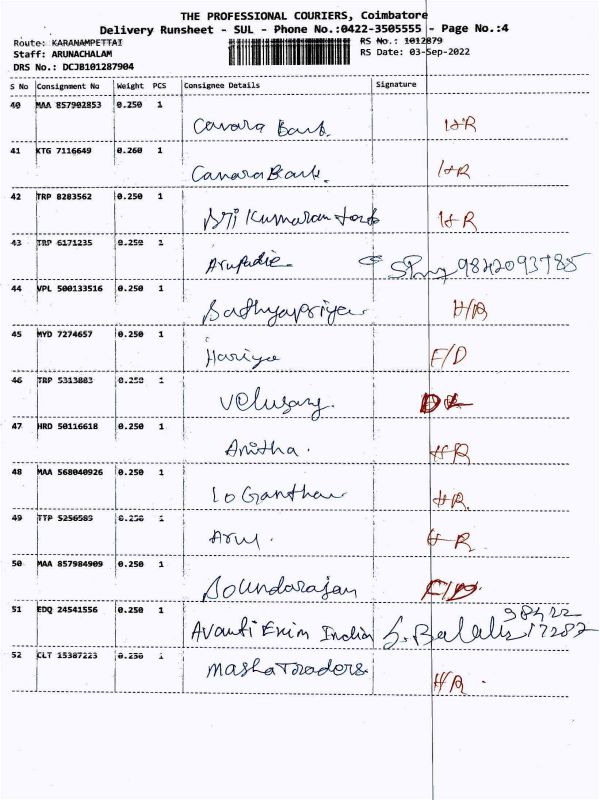 THE PROFESSIONAL COURIERS, Coimbatore
Delivery Runsheet - SUL - Phone No.:0422-3505555 - Page No.:4
Route: KARANAMPETTAI RS No.: 1012879
Staff: ARUNACHALAM RS Date: 03-Sep-2022
DRS No.: DCJB101287904
S No Consignment No Weight PCS Consignee Details Signature
40 MAA 857902853 0.250 1
Canara Bank. H R
41 KTG 7116649 0.260 1
Canara Bank. H R
42 TRP 8283562 0.250 1
Sri Kumaran H R
43 TRP 6171235 0.250 1
9842093785
44 VPL 500133516 0.250 1
Sathyapriya H/R
45 MYD 7274657 0.250 1
Hariya F/D
46 TRP 5313883 0.250 1
Velusamy.
47 HRD 50116618 0.250 1
Anitha. H R
48 MAA 568040926 0.250 1
Loganathan H R.
49 TTP 5256583 0.250 1
Arul. H R.
50 MAA 857984909 0.250 1
Soundarajan F/D.
51 EDQ 24541556 0.250 1
Avanti Exim India S. Balaks 98422 17282
52 CLT 15387223 0.250 1
Masha Traders H/R.